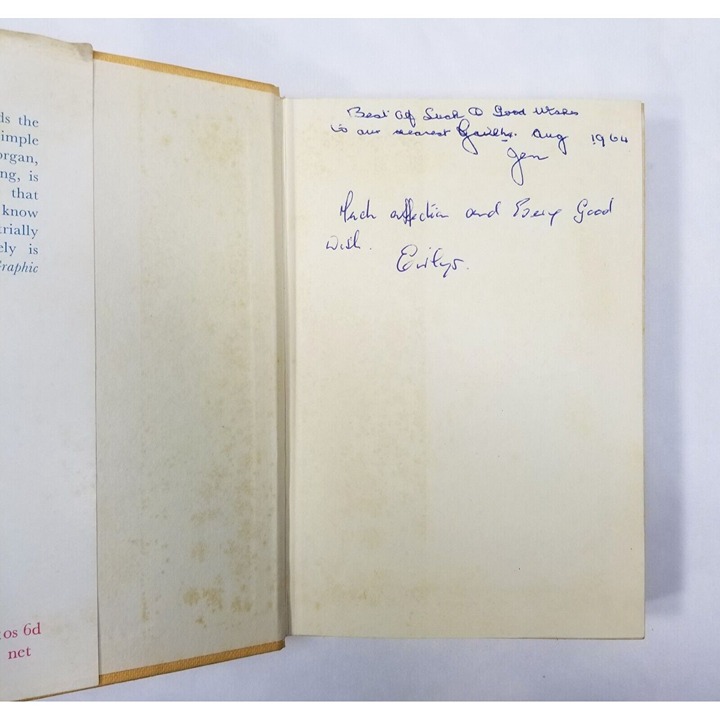 ds the
simple
organ,
ng, is
that
know
trially
ely is
Graphic
os 6d
net
Best of Luck & Good Wishes
to our nearest Aug 1964
Jen
Much affection and Every Good
Wish.